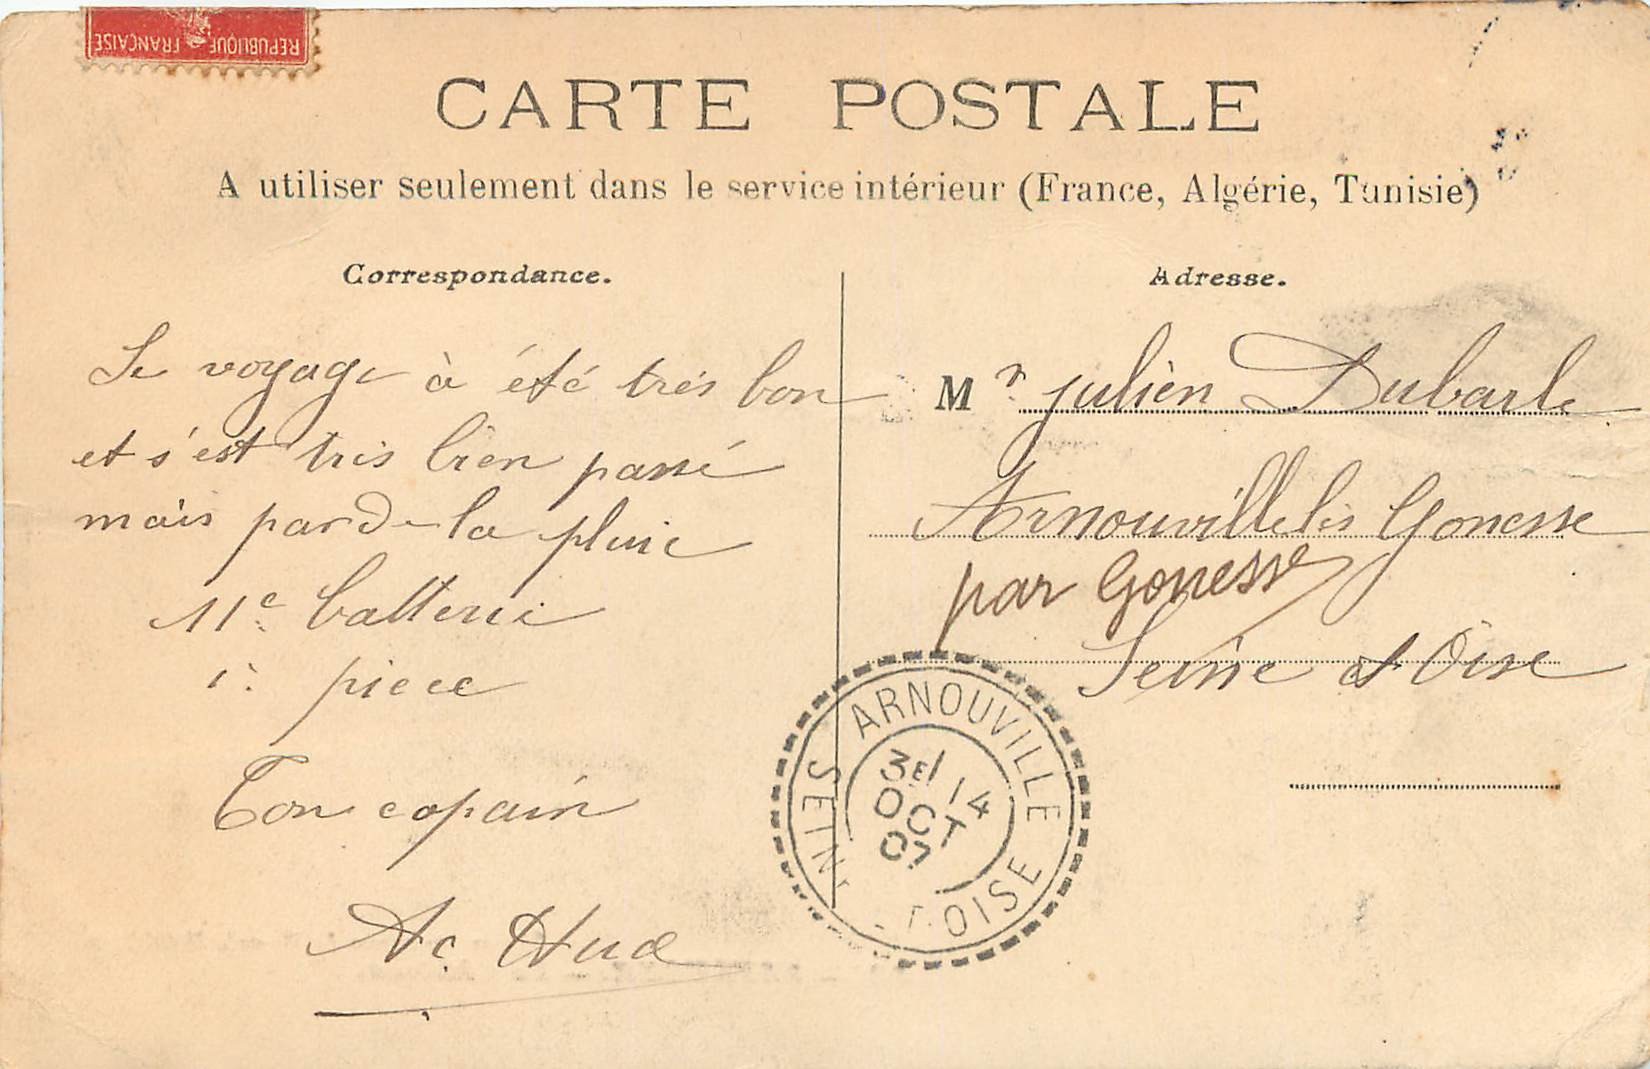 REPUBLIQUE FRANÇAISE
CARTE POSTALE
A utiliser seulement dans le service intérieur (France, Algérie, Tunisie)
Correspondance.
Le voyage à été très bon
et s'est très bien passé
mais par de la pluie
11e batterie
1e piece
Ton copain
Ac. Hue
Adresse.
Mr julien Dubarle
Arnouville lès Gonesse
par Gonesse
Seine et Oise
ARNOUVILLE
SEINE-ET-OISE
3E/ 14
OCT
07